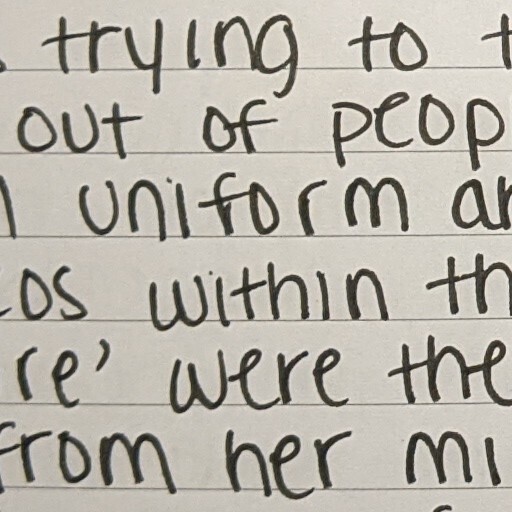 trying to t
out of peop
uniform ar
os within th
re' were the
from her mi